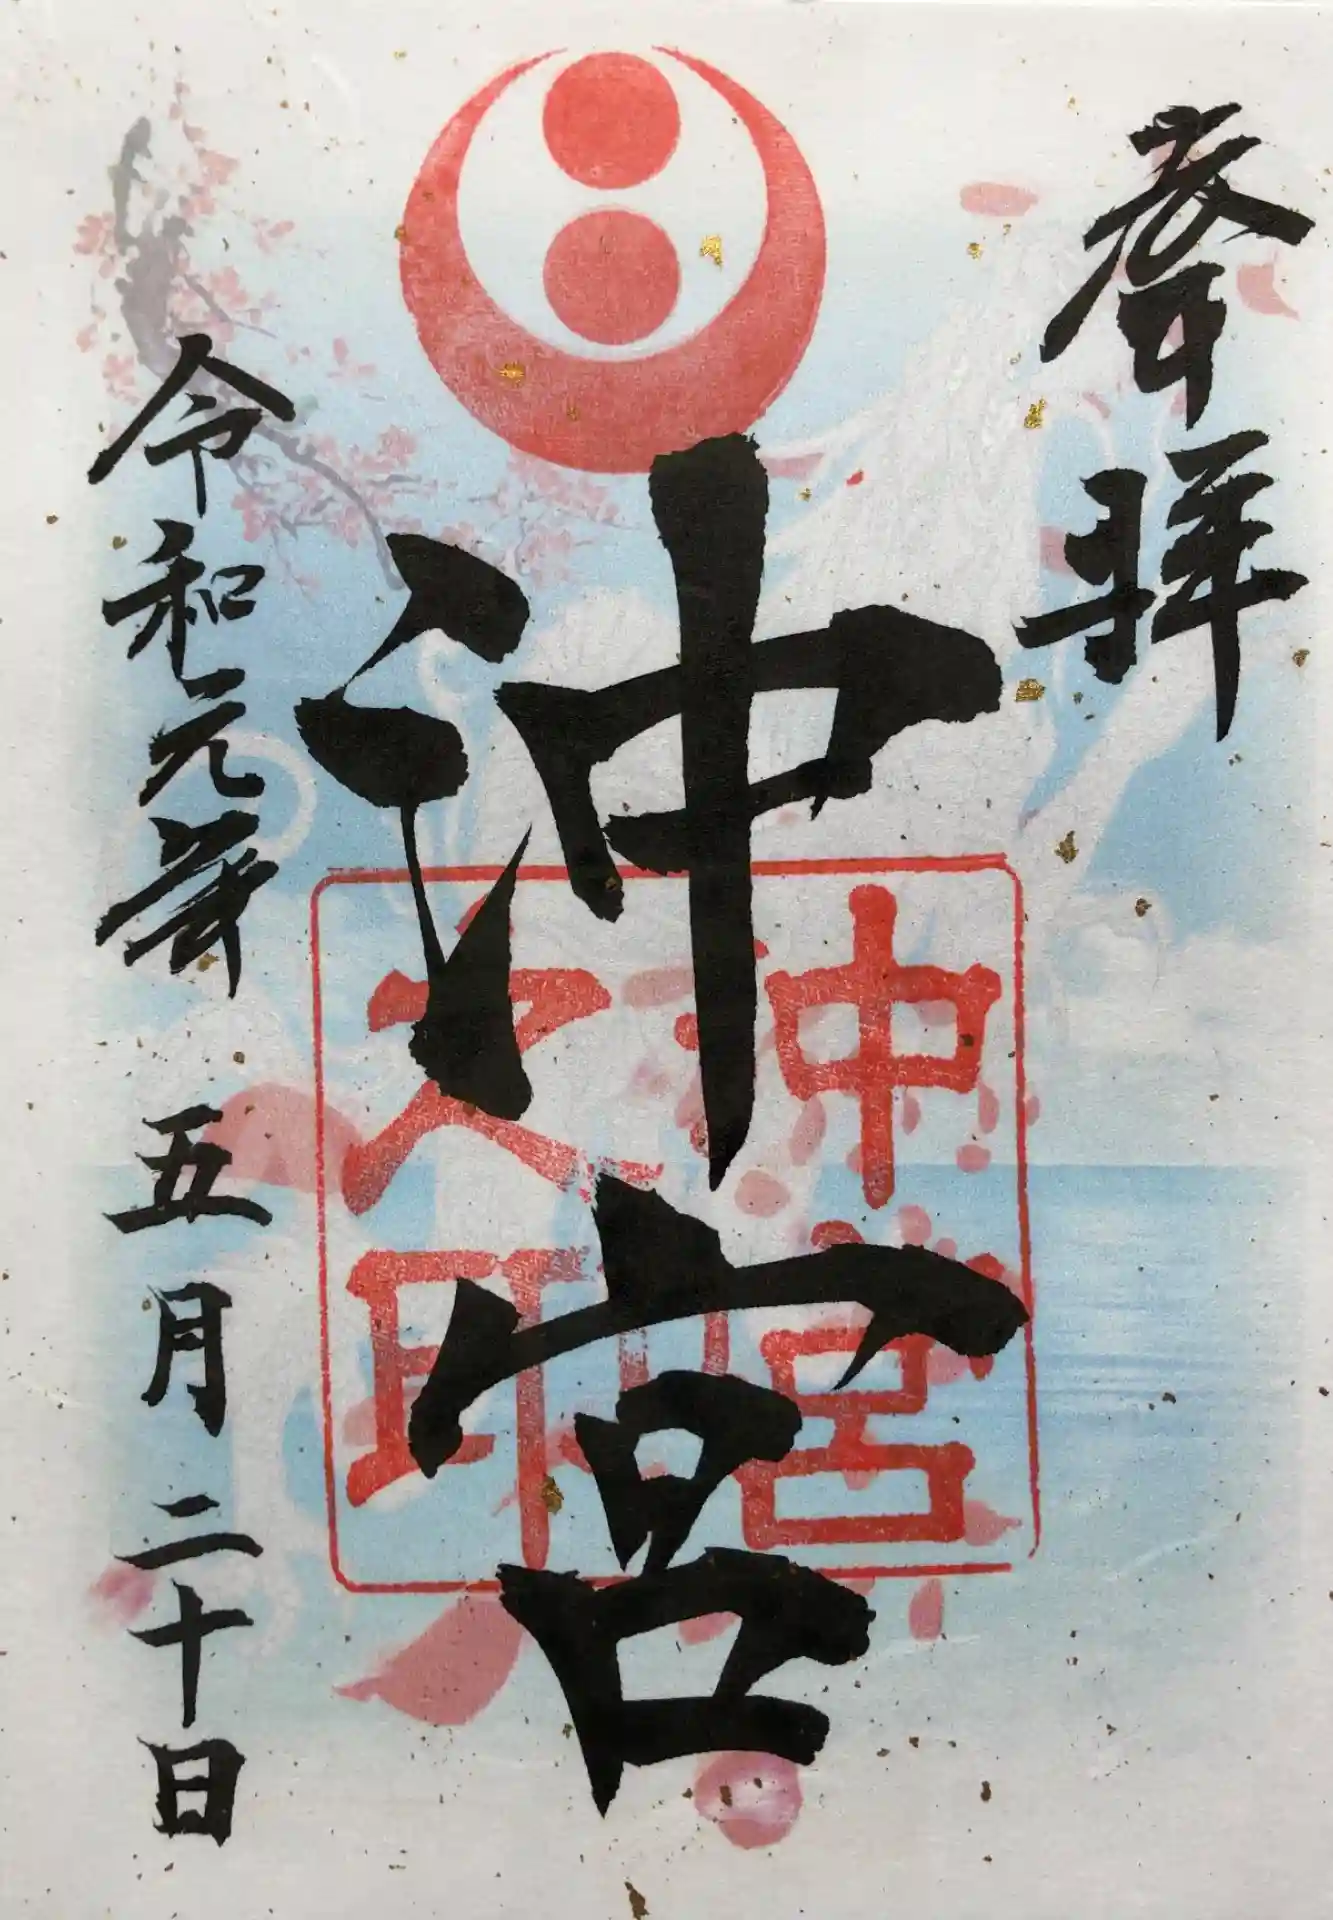 奉拝
沖宮
沖宮
之印
令和元年
五月二十日